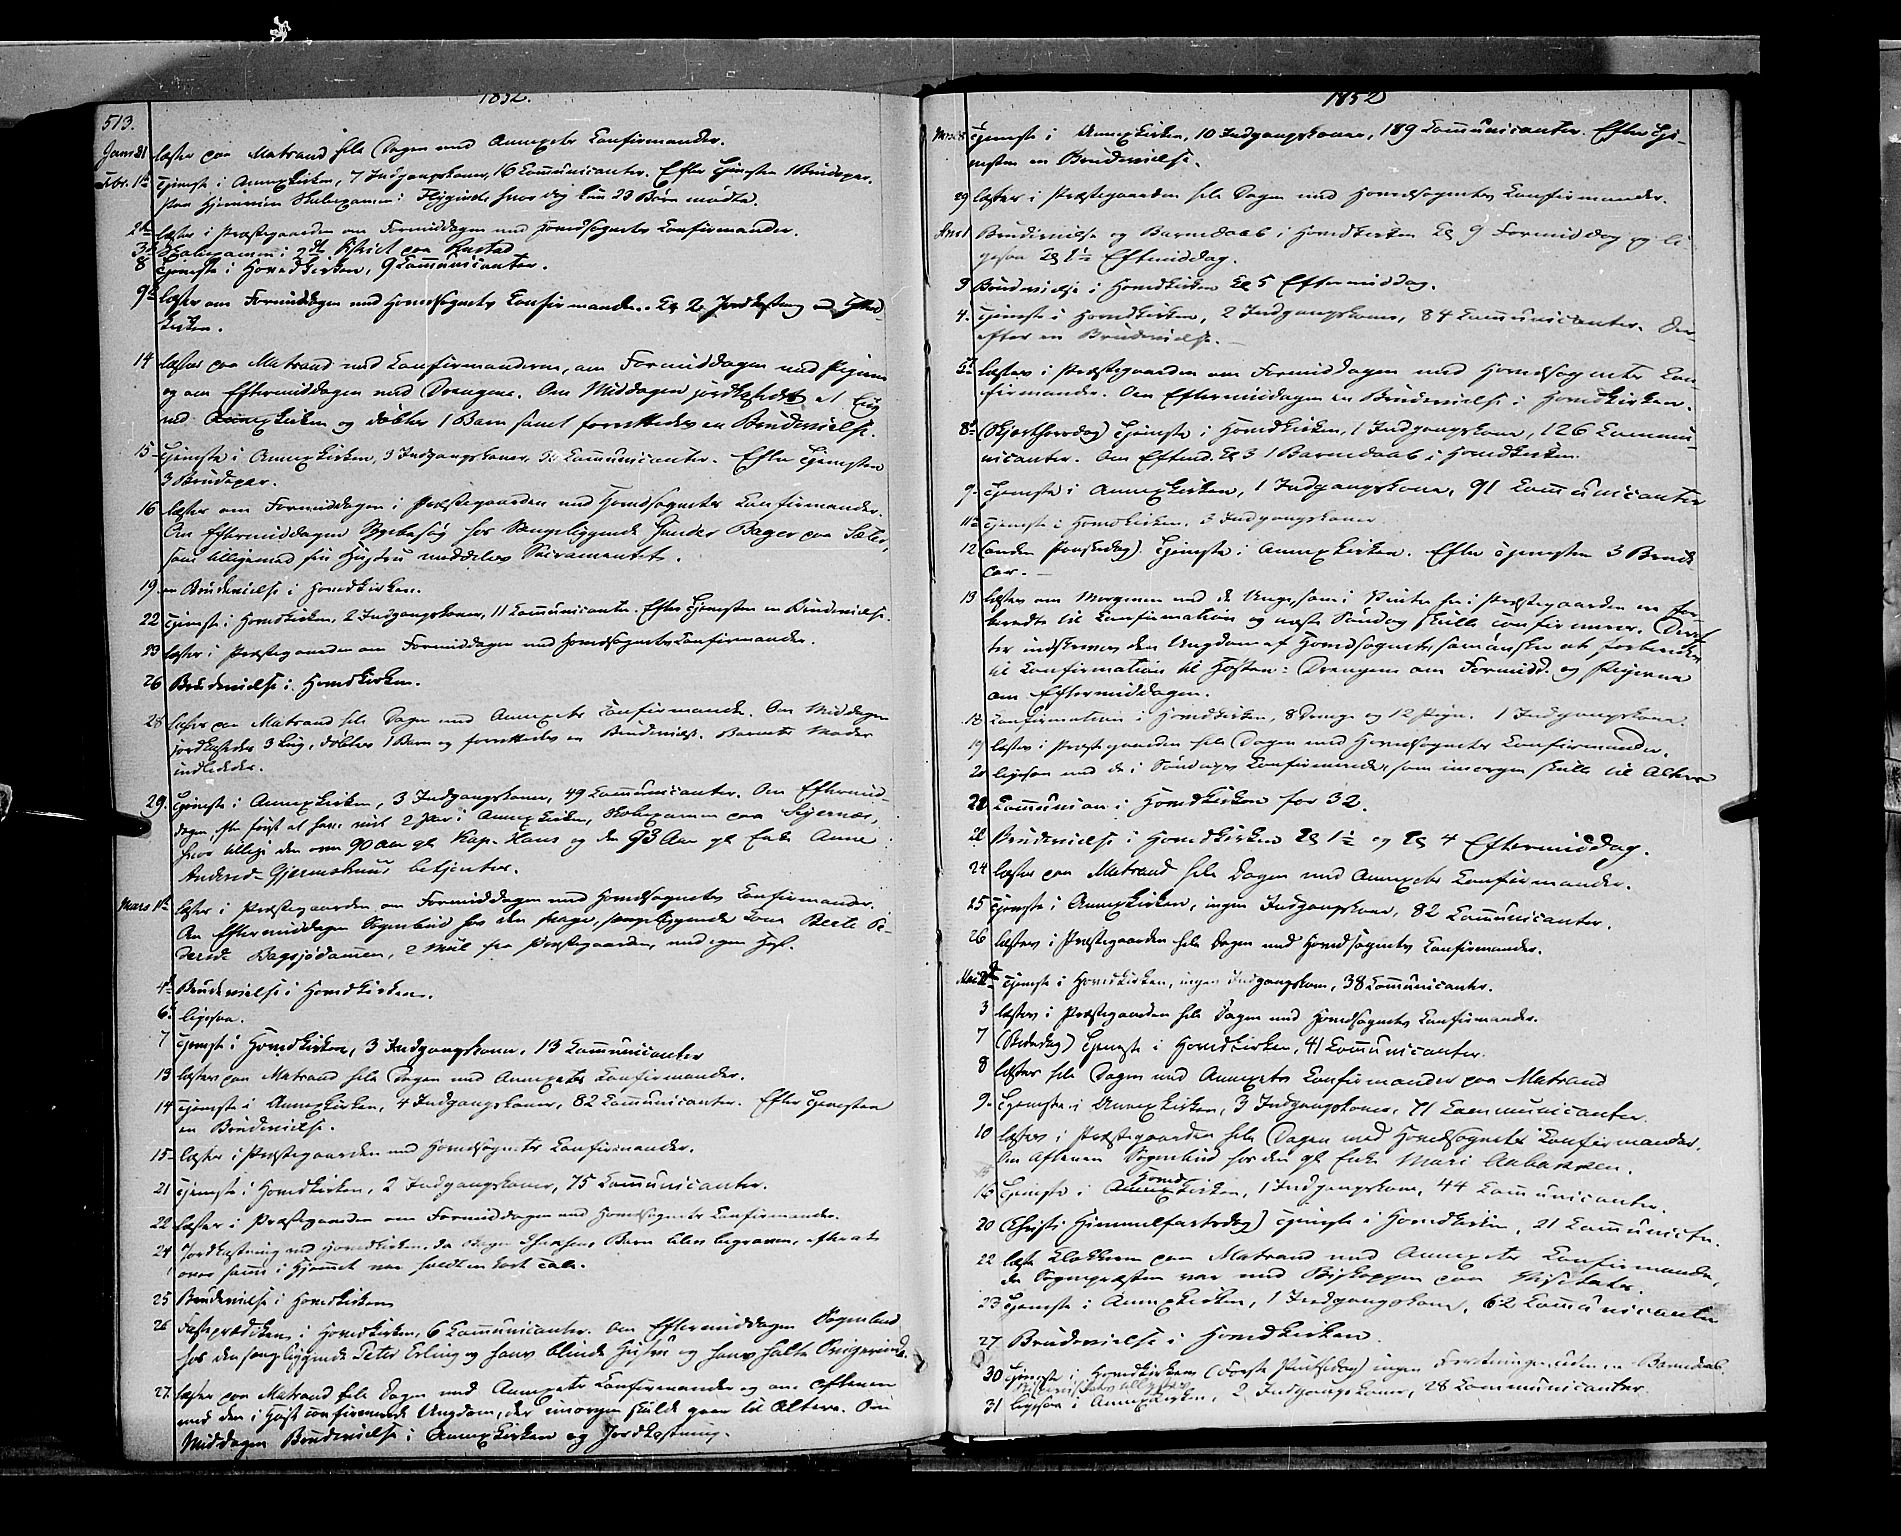 513.
1852.
Janr 31 læstes paa Matrand hele Dagen med Annexets Confirmander.
Febr. 1ste Tjeneste i Annexkirken, 7 Indgangskoner, 16 Communicanter. Efter Tjenesten 1 Brudepar.
Paa Hjemveien Skoleexamen i hvor dog kun 23 Børn mødte.
2den læstes i Præstegaarden om Formiddagen med Hovedsognets Confirmander.
3die Skoleexamen i 2det District paa Rustad
8 Tjeneste i Hovedkirken, 9 Communicanter.
9de læstes om Formiddagen med Hovedsognets Confirmander. Kl 2 Jordkastning ved Hoved-
kirken.
14 læstes paa Matrand med Confirmanderne, om Formiddagen med Pigerne
og om Eftermiddagen med Drengene. Om Middagen jordkastedes et Liig
ved Annexkirken og døbtes 1 Barn samt forrettedes en Brudevielse.
15 Tjeneste i Annexkirken, 3 Indgangskoner, Communicanter. Efter Tjenesten
3 Brudepar.
16 læstes om Formiddagen i Præstegaarden med Hovedsognets Confirmander.
Om Eftermiddagen Sygebesøg hos Sengeliggende Gunder Bager paa Sæter,
som tilligemed sin Hustru meddeltes Sacramentet.
19. en Brudevielse i Hovedkirken.
22 Tjeneste i Hovedkirken, 2 Indgangskoner, 11 Communicanter. Efter Tjenesten en Brudevielse.
23 læstes i Præstegaarden om Formiddagen med Hovedsognets Confirmander.
26 Brudevielse i Hovedkirken.
28 læstes paa Matrand hele Dagen med Annexets Confirmander. Om Middagen
jordkastedes 3 Liig, døbtes 1 Barn og forrettedes en Brudevielse. Barnets Moder
indlededes.
29. Tjeneste i Annexkirken, 3 Indgangskoner, 49 Communicanter. Om Eftermid-
dagen, efter først at have viet 2 Par i Annexkirken, Skoleexamen paa
hvor tillige den over 90 Aar gl. Hans og den 93 Aar gl Enke Anne
betjentes.
Mars 1ste læstes i Præstegaarden om Formiddagen med Hovedsognets Confirmander.
Om Eftermiddagen Sognebud hos den svage, sengeliggende Kone Berte Pe-
dersd. 2 Miil fra Præstegaarden, med egen Hest.
4de Brudevielse i Hovedkirken.
6 ligesaa.
7 Tjeneste i Hovedkirken, 3 Indgangskoner, 13 Communicanter
13 læstes paa Matrand hele Dagen med Annexets Confirmander.
14 Tjeneste i Annexkirken, 4 Indgangskoner, 82 Communicanter. Efter Tjenesten
en Brudevielse.
15 læstes i Præstegaarden med Hovedsognets Confirmander.
21 Tjeneste i Hovedkirken, 2 Indgangskoner, 75 Communicanter.
22 læstes i Præstegaarden om Formiddagen med Hovedsognets Confirmander.
24 Jordkastning ved Hovedkirken, da Barn blev begraven, efterat
over samme i Hjemmet var holdt en kort Tale.
25 Brudevielse i Hovedkirken
26 Fasteprædiken i Hovedkirken, 6 Communicanter. Om Eftermiddagen Sognebud
hos den sengliggende Peter Erling og hans blinde Hustru og hans halte
27. læstes paa Matrand hele Dagen med Annexets Confirmander og om Aftenen
med den i Høst confirmerede Ungdom, der imorgen skulde gaae til Alters. Om
Middagen Brudevielse i Annexkirken og Jordkastning.
1852
Mars 28 Tjeneste i Annexkirken, 10 Indgangskoner, 189 Communicanter. Efter Tje-
nesten en Brudevielse.
29 læstes i Præstegaarden hele Dagen med Hovedsognets Confirmander.
1 Brudevielse og Barnedaab i Hovedkirken Kl 9 Formiddag og li-
gesaa Kl 1½ Eftmiddag.
3 Brudevielse i Hovedkirken Kl 5 Eftermiddag.
4. Tjeneste i Hovedkirken, 2 Indgangskoner, 84 Communicanter. Der-
efter en Brudevielse.
5te læstes i Præstegaarden om Formiddagen med Hovedsognets Con-
firmander. Om Eftermiddagen en Brudevielse i Hovedkirken.
8de (Skjærthorsdag) Tjeneste i Hovedkirken, 1 Indgangskone, 126 Commu-
nicanter. Om Efterm. Kl 3 1 Barnedaab i Hovedkirken.
9. Tjeneste i Annexkirken, 1 Indgangskone, 91 Communicanter
11te Tjeneste i Hovedkirken, 3 Indgangskoner
12 (anden Paaskedag) Tjeneste i Annexkirken. Efter Tjenesten 3 Brude-
par.
13 læstes om Morgenen med de Unge som i Vinter her i Præstegaarden ere for-
beredte til Confirmation og næste Søndag skulle confirmeres. Deref-
ter indskreves den Ungdom af Hovedsognet, som ønsker at forberedes
til Confirmation til Høsten: Drengene om Formidd. og Pigerne
om Eftermiddagen.
18 Confirmation i Hovedkirken, 8 Drenge og 12 Piger. 1 Indgangskone.
19 læstes i Præstegaarden hele Dagen med Hovedsognets Confirmander.
20 ligesaa med de i Søndags Confirmerede, som imorgen skulle til Alters
21 Communion i Hovedkirken for 32.
22 Brudevielse i Hovedkirken Kl 1½ og Kl 4 Eftermiddag.
24 læstes paa Matrand hele Dagen med Annexets Confirmander.
25 Tjeneste i Annexkirken, ingen Indgangskone, 82 Communicanter.
26 læstes i Præstegaarden hele Dagen med Hovedsognets Confirmander.
Mai 2den Tjeneste i Hovedkirken, ingen Indgangskone, 38 Communicanter.
3 læstes i Præstegaarden hele Dagen med Hovedsognets Confirmander.
7 (Bededag) Tjeneste i Hovedkirken, 41 Communicanter.
8 læstes hele Dagen med Annexets Confirmander paa Matrand
9. Tjeneste i Annexkirken, 3 Indgangskoner, 71 Communicanter.
10 læstes i Præstegaarden hele Dagen med Hovedsognets Confirmander.
Om Aftenen Sognebud hos den gl. Enke Mari
16 Tjeneste i Hovedkirken, 1 Indgangskone, 44 Communicanter.
20 (Christi Himmelfartsdag) Tjeneste i Hovedkirken, 21 Communictr.
22 læste Klokkeren paa Matrand med Annexets Confirmander,
da Sognepræsten var med Biskoppen paa
23 Tjeneste i Annexkirken, 1 Indgangskone, 62 Communicanter
27 Brudevielse i Hovedkirken.
30 Tjeneste i Hovedkirken (Første Pintsedag) ingen Forretninger uden en Barnedaab
31 ligesaa i Annexkirken, 2 Indgangskoner, 28 Communicanter.